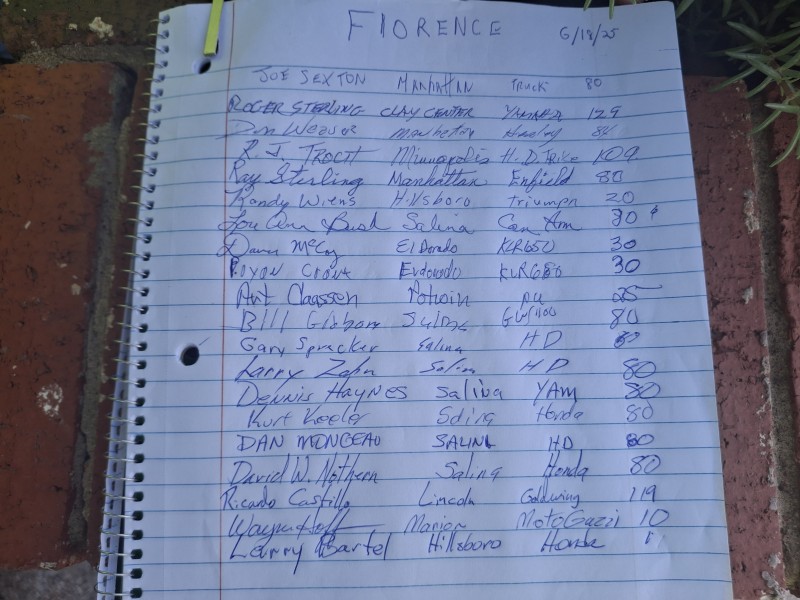 FlORENCE 6/18/25
JOE SEXTON MANHATTAN TRUCK 80
ROGER STERLING CLAY CENTER YAMAHA 129
Don Weaver Manhattan Harley 84
R.J. TROTT Minneapolis H.D. Trike 109
Ray Sterling Manhattan Enfield 80
Randy Wiens Hillsboro triumph 20
Lou Ann Bush Salina Can Am 80
McCoy El Dorado KLR650 30
30
Art Claassen Potwin 25
Bill Salina 80
Gary Sprecker Salina HD 80
Larry Zahn Salina HD 80
Dennis Haynes Salina YAM 80
Kurt Keeler Salina Honda 80
DAN MONCEAU SALINA HD 80
David W. Nothern Salina Honda 80
Ricardo Castillo Lincoln Goldwing 119
Wayne Marion MotoGuzzi 10
Larry Bartel Hillsboro Honda